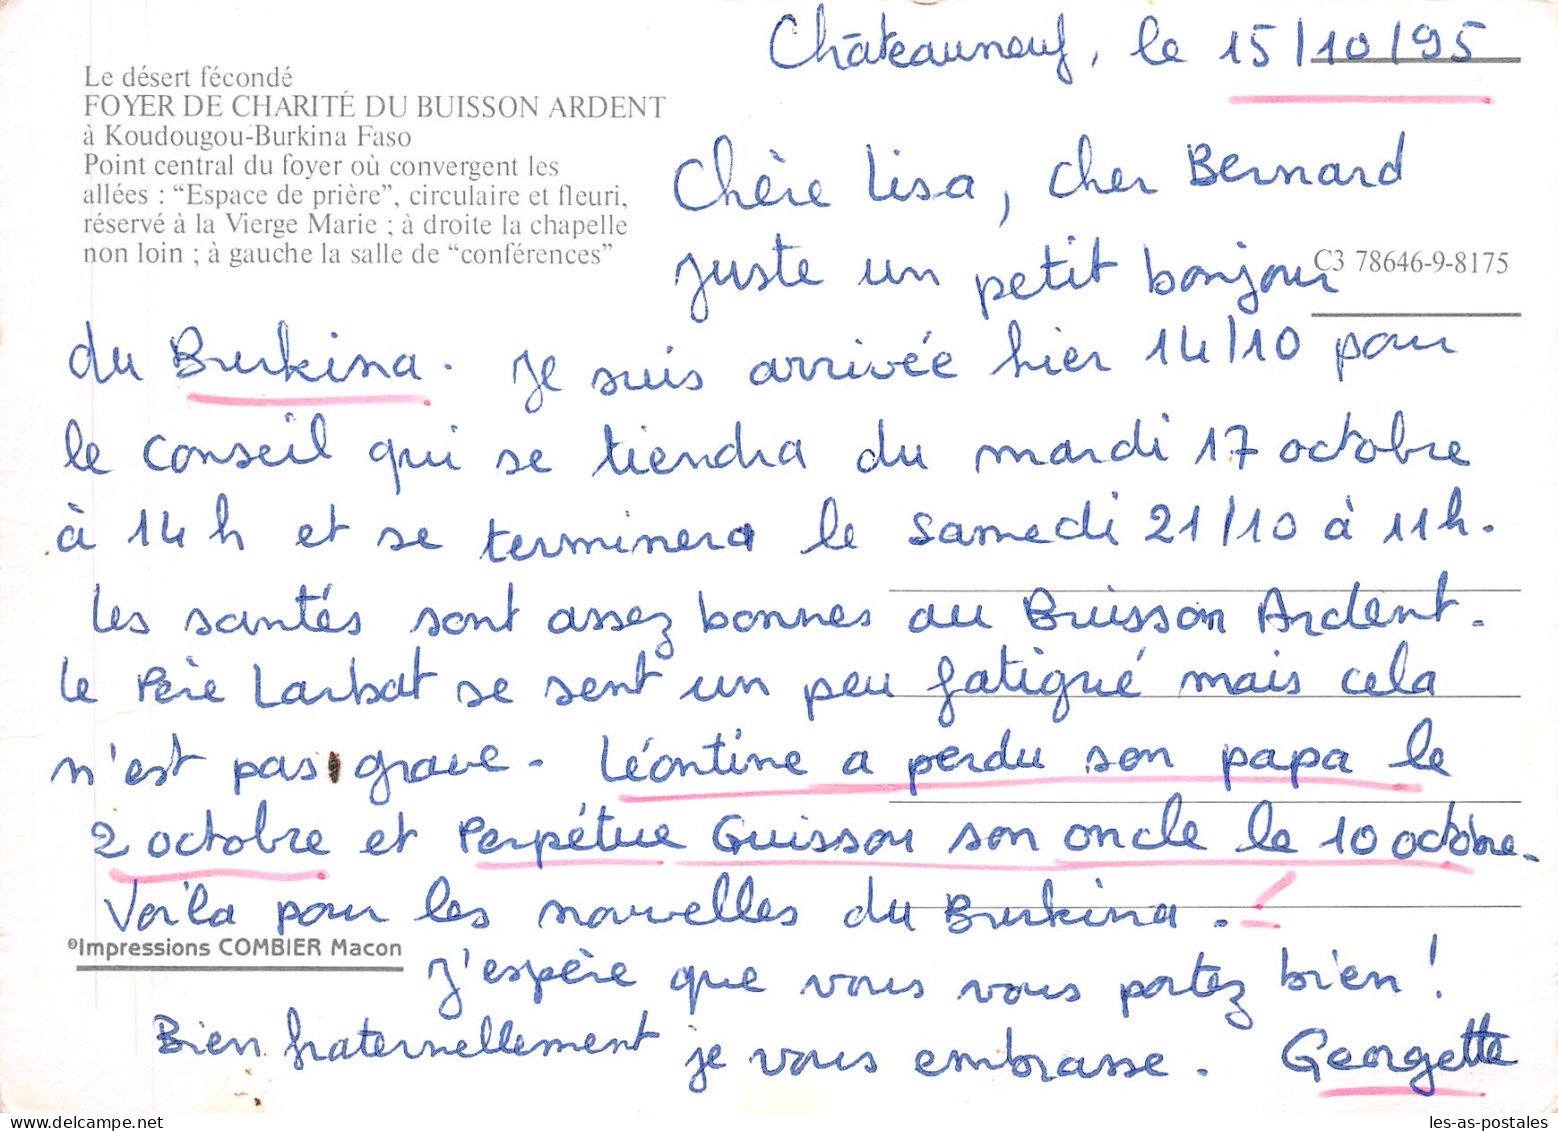 Châteauneuf, le 15/10/95
Le désert fécondé
FOYER DE CHARITÉ DU BUISSON ARDENT
à Koudougou-Burkina Faso
Point central du foyer où convergent les
allées : “Espace de prière”, circulaire et fleuri,
réservé à la Vierge Marie ; à droite la chapelle
non loin ; à gauche la salle de “conférences”
C3 78646-9-8175
Chère Lisa, cher Bernard
Juste un petit bonjour
du Burkina. Je suis arrivée hier 14/10 pour
le conseil qui se tiendra du mardi 17 octobre
à 14 h et se terminera le samedi 21/10 à 11h.
Les santés sont assez bonnes au Buisson Ardent.
Le Père Larbat se sent un peu fatigué mais cela
n'est pas grave. Léontine a perdu son papa le
2 octobre et Perpétue Guisson son oncle le 10 octobre.
Voilà pour les nouvelles du Burkina.
J'espère que vous vous portez bien !
Bien fraternellement je vous embrasse. Georgette
Impressions COMBIER Macon
les-as-postales